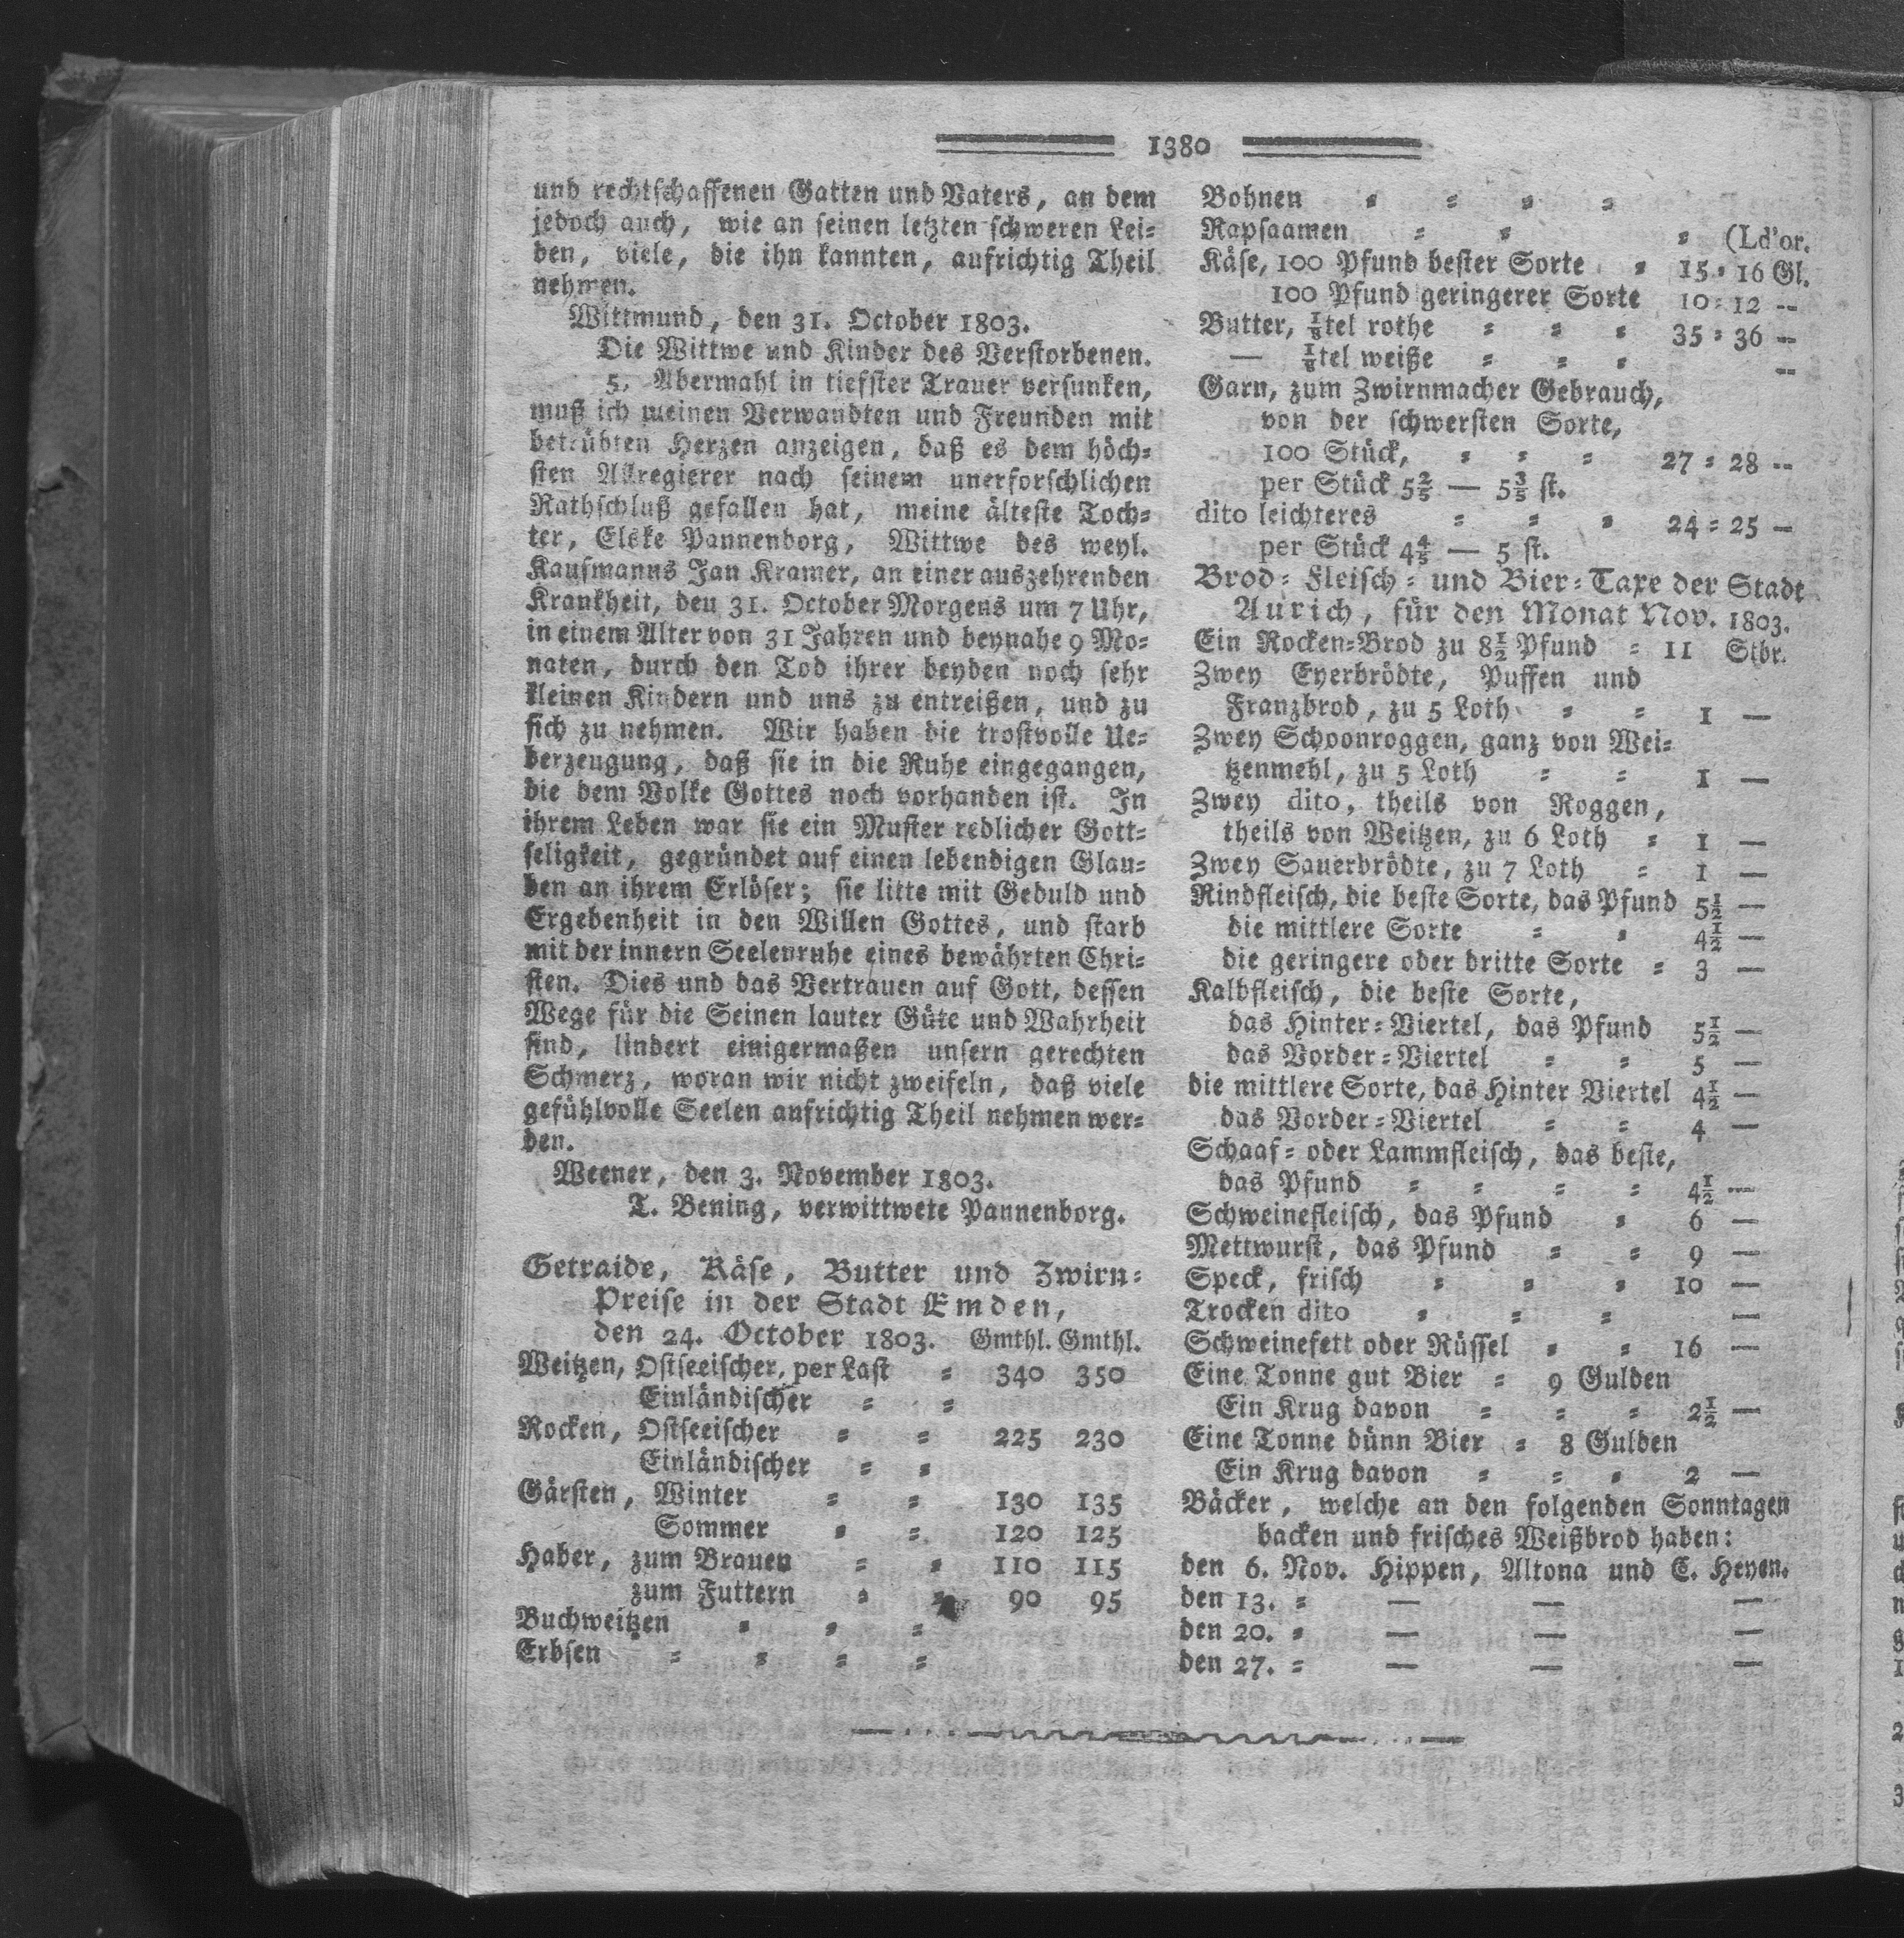 1380
und rechtschaffenen Gatten und Vaters, an dem
jedoch auch, wie an seinen letzten schweren Lei-
den, viele, die ihn kannten, aufrichtig Theil
nehmen.
Wittmund, den 31. October 1803.
Die Wittwe und Kinder des Verstorbenen.
5. Abermahl in tiefster Trauer versunken,
muß ich meinen Verwandten und Freunden mit
betrübten Herzen anzeigen, daß es dem höch-
sten Allregierer nach seinem unerforschlichen
Rathschluß gefallen hat, meine älteste Toch-
ter, Elske Pannenborg, Wittwe des weyl.
Kaufmanns Jan Kramer, an einer auszehrenden
Krankheit, den 31. October Morgens um 7 Uhr,
in einem Alter von 31 Jahren und beynahe 9 Mo-
naten, durch den Tod ihrer beyden noch sehr
kleinen Kindern und uns zu entreißen, und zu
sich zu nehmen. Wir haben die trostvolle Ue-
berzeugung, daß sie in die Ruhe eingegangen,
die dem Volke Gottes noch vorhanden ist. In
ihrem Leben war sie ein Muster redlicher Gott-
seligkeit, gegründet auf einen lebendigen Glau-
ben an ihrem Erlöser; sie litte mit Geduld und
Ergebenheit in den Willen Gottes, und starb
mit der innern Seelenruhe eines bewährten Chri-
sten. Dies und das Vertrauen auf Gott, dessen
Wege für die Seinen lauter Güte und Wahrheit
sind, lindert einigermaßen unsern gerechten
Schmerz, woran wir nicht zweifeln, daß viele
gefühlvolle Seelen aufrichtig Theil nehmen wer-
den.
Weener, den 3. November 1803.
T. Bening, verwittwete Pannenborg.
Getraide, Käse, Butter und Zwirn-
Preise in der Stadt Emden,
den 24. October 1803. Gmthl. Gmthl.
Weitzen, Ostseeischer, per Last = 340 350
Einländischer = =
Rocken, Ostseeischer = = 225 230
Einländischer = =
Gärsten, Winter = = 130 135
Sommer = = 120 125
Haber, zum Brauen = = 110 115
zum Futtern = = 90 95
Buchweitzen = = =
Erbsen = = = =
Bohnen = = = =
Rapsaamen = = = (Ld'or.
Käse, 100 Pfund bester Sorte = 15 = 16 Gl.
100 Pfund geringerer Sorte 10 = 12 --
Butter, 1/8tel rothe = = = 35 = 36 --
— 1/8tel weiße = = = --
Garn, zum Zwirnmacher Gebrauch,
von der schwersten Sorte,
100 Stück, = = = 27 = 28 --
per Stück 5 2/5 — 5 3/5 st.
dito leichteres = = = 24 = 25 --
per Stück 4 4/5 — 5 st.
Brod- Fleisch- und Bier-Taxe der Stadt
Aurich, für den Monat Nov. 1803.
Ein Rocken-Brod zu 8 1/2 Pfund = 11 Stbr.
Zwey Eyerbrödte, Puffen und
Franzbrod, zu 5 Loth = = 1 —
Zwey Schoonroggen, ganz von Wei-
tzenmehl, zu 5 Loth = = 1 —
Zwey dito, theils von Roggen,
theils von Weitzen, zu 6 Loth = 1 —
Zwey Sauerbrödte, zu 7 Loth = 1 —
Rindfleisch, die beste Sorte, das Pfund 5 1/2 —
die mittlere Sorte = = 4 1/2 —
die geringere oder dritte Sorte = 3 —
Kalbfleisch, die beste Sorte,
das Hinter-Viertel, das Pfund 5 1/2 —
das Vorder-Viertel = = 5 —
die mittlere Sorte, das Hinter Viertel 4 1/2 —
das Vorder-Viertel = = 4 —
Schaaf- oder Lammfleisch, das beste,
das Pfund = = = = 4 1/2 —
Schweinefleisch, das Pfund = 6 —
Mettwurst, das Pfund = = 9 —
Speck, frisch = = = 10 —
Trocken dito = = = —
Schweinefett oder Rüssel = = 16 —
Eine Tonne gut Bier = 9 Gulden
Ein Krug davon = = = 2 1/2 —
Eine Tonne dünn Bier = 8 Gulden
Ein Krug davon = = = 2 —
Bäcker, welche an den folgenden Sonntagen
backen und frisches Weißbrod haben:
den 6. Nov. Hippen, Altona und C. Heyen.
den 13. = — — —
den 20. = — — —
den 27. = — — —